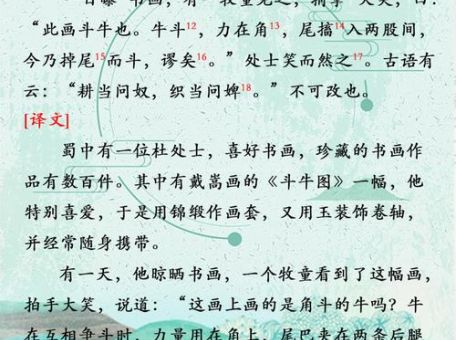 日曝书画，有一牧童见之，拊掌大笑，曰：
“此画斗牛也。牛斗12，力在角13，尾搐14入两股间，
今乃掉尾15而斗，谬矣16。”处士笑而然之17。古语有
云：“耕当问奴，织当问婢18。”不可改也。
[译文]
蜀中有一位杜处士，喜好书画，珍藏的书画作
品有数百件。其中有戴嵩画的《斗牛图》一幅，他
特别喜爱，于是用锦缎作画套，又用玉装饰卷轴，
并经常随身携带。
有一天，他晾晒书画，一个牧童看到了这幅画，
拍手大笑，说道：“这画上画的是角斗的牛吗？牛
在互相争斗时，力量用在角上，尾巴夹在两条后腿